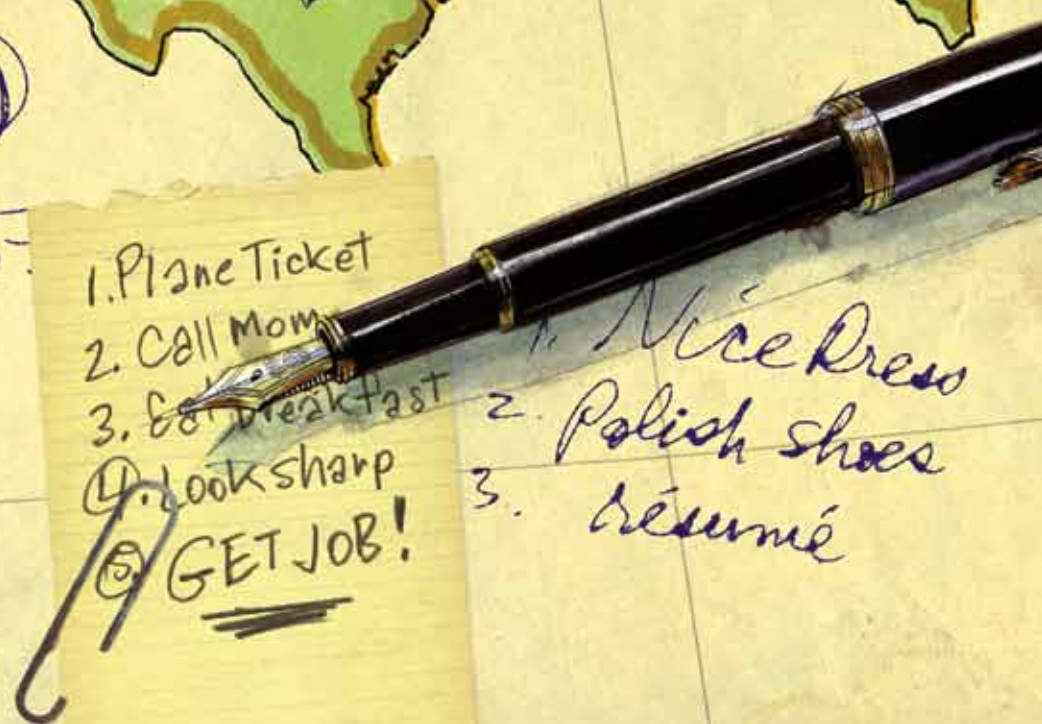 1. Plane Ticket
2. Call Mom
3. Eat Breakfast
4. Look sharp
5. GET JOB!
1. Nice Dress
2. Polish shoes
3. résumé